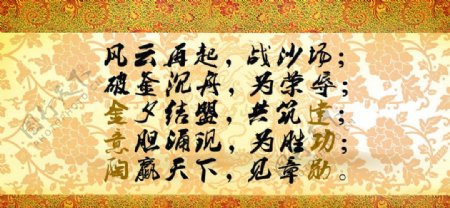 风云再起，战沙场；
破釜沉舟，为荣辱；
金夕结盟，共筑建；
意胆涌现，为胜功；
陶赢天下，见章勋。